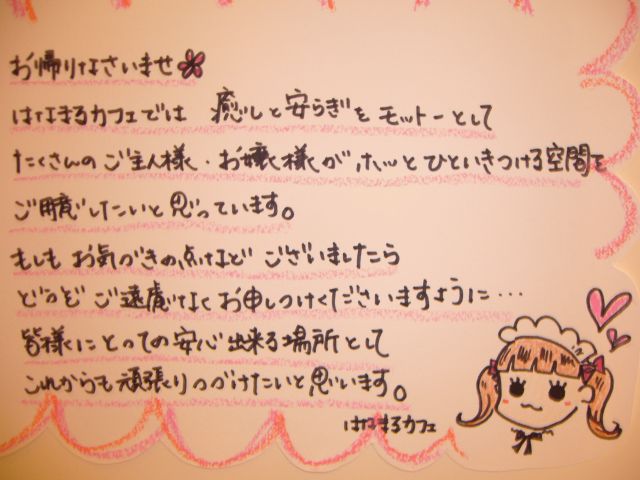 お帰りなさいませ
はなまるカフェでは 癒しと安らぎをモットーとして
たくさんのご主人様・お嬢様がホッとひといきつける空間を
ご用意したいと思っています。
もしもお気づきの点などございましたら
どうぞご遠慮なくお申しつけくださいますように…
皆様にとっての安心出来る場所として
これからも頑張りつづけたいと思います。
はなまるカフェ